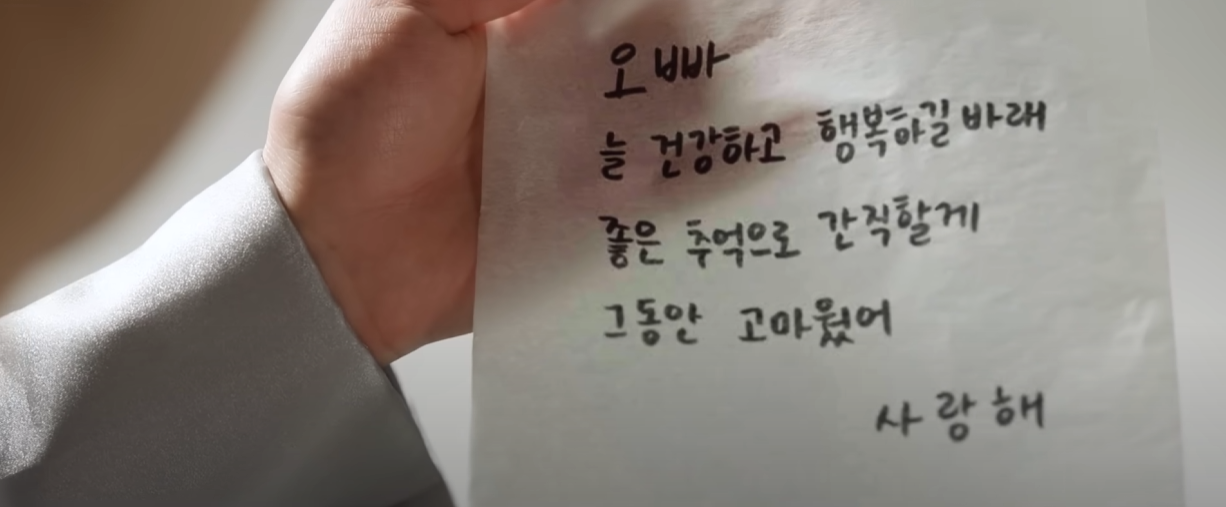 오빠
늘 건강하고 행복하길 바래
좋은 추억으로 간직할게
그동안 고마웠어
사랑해